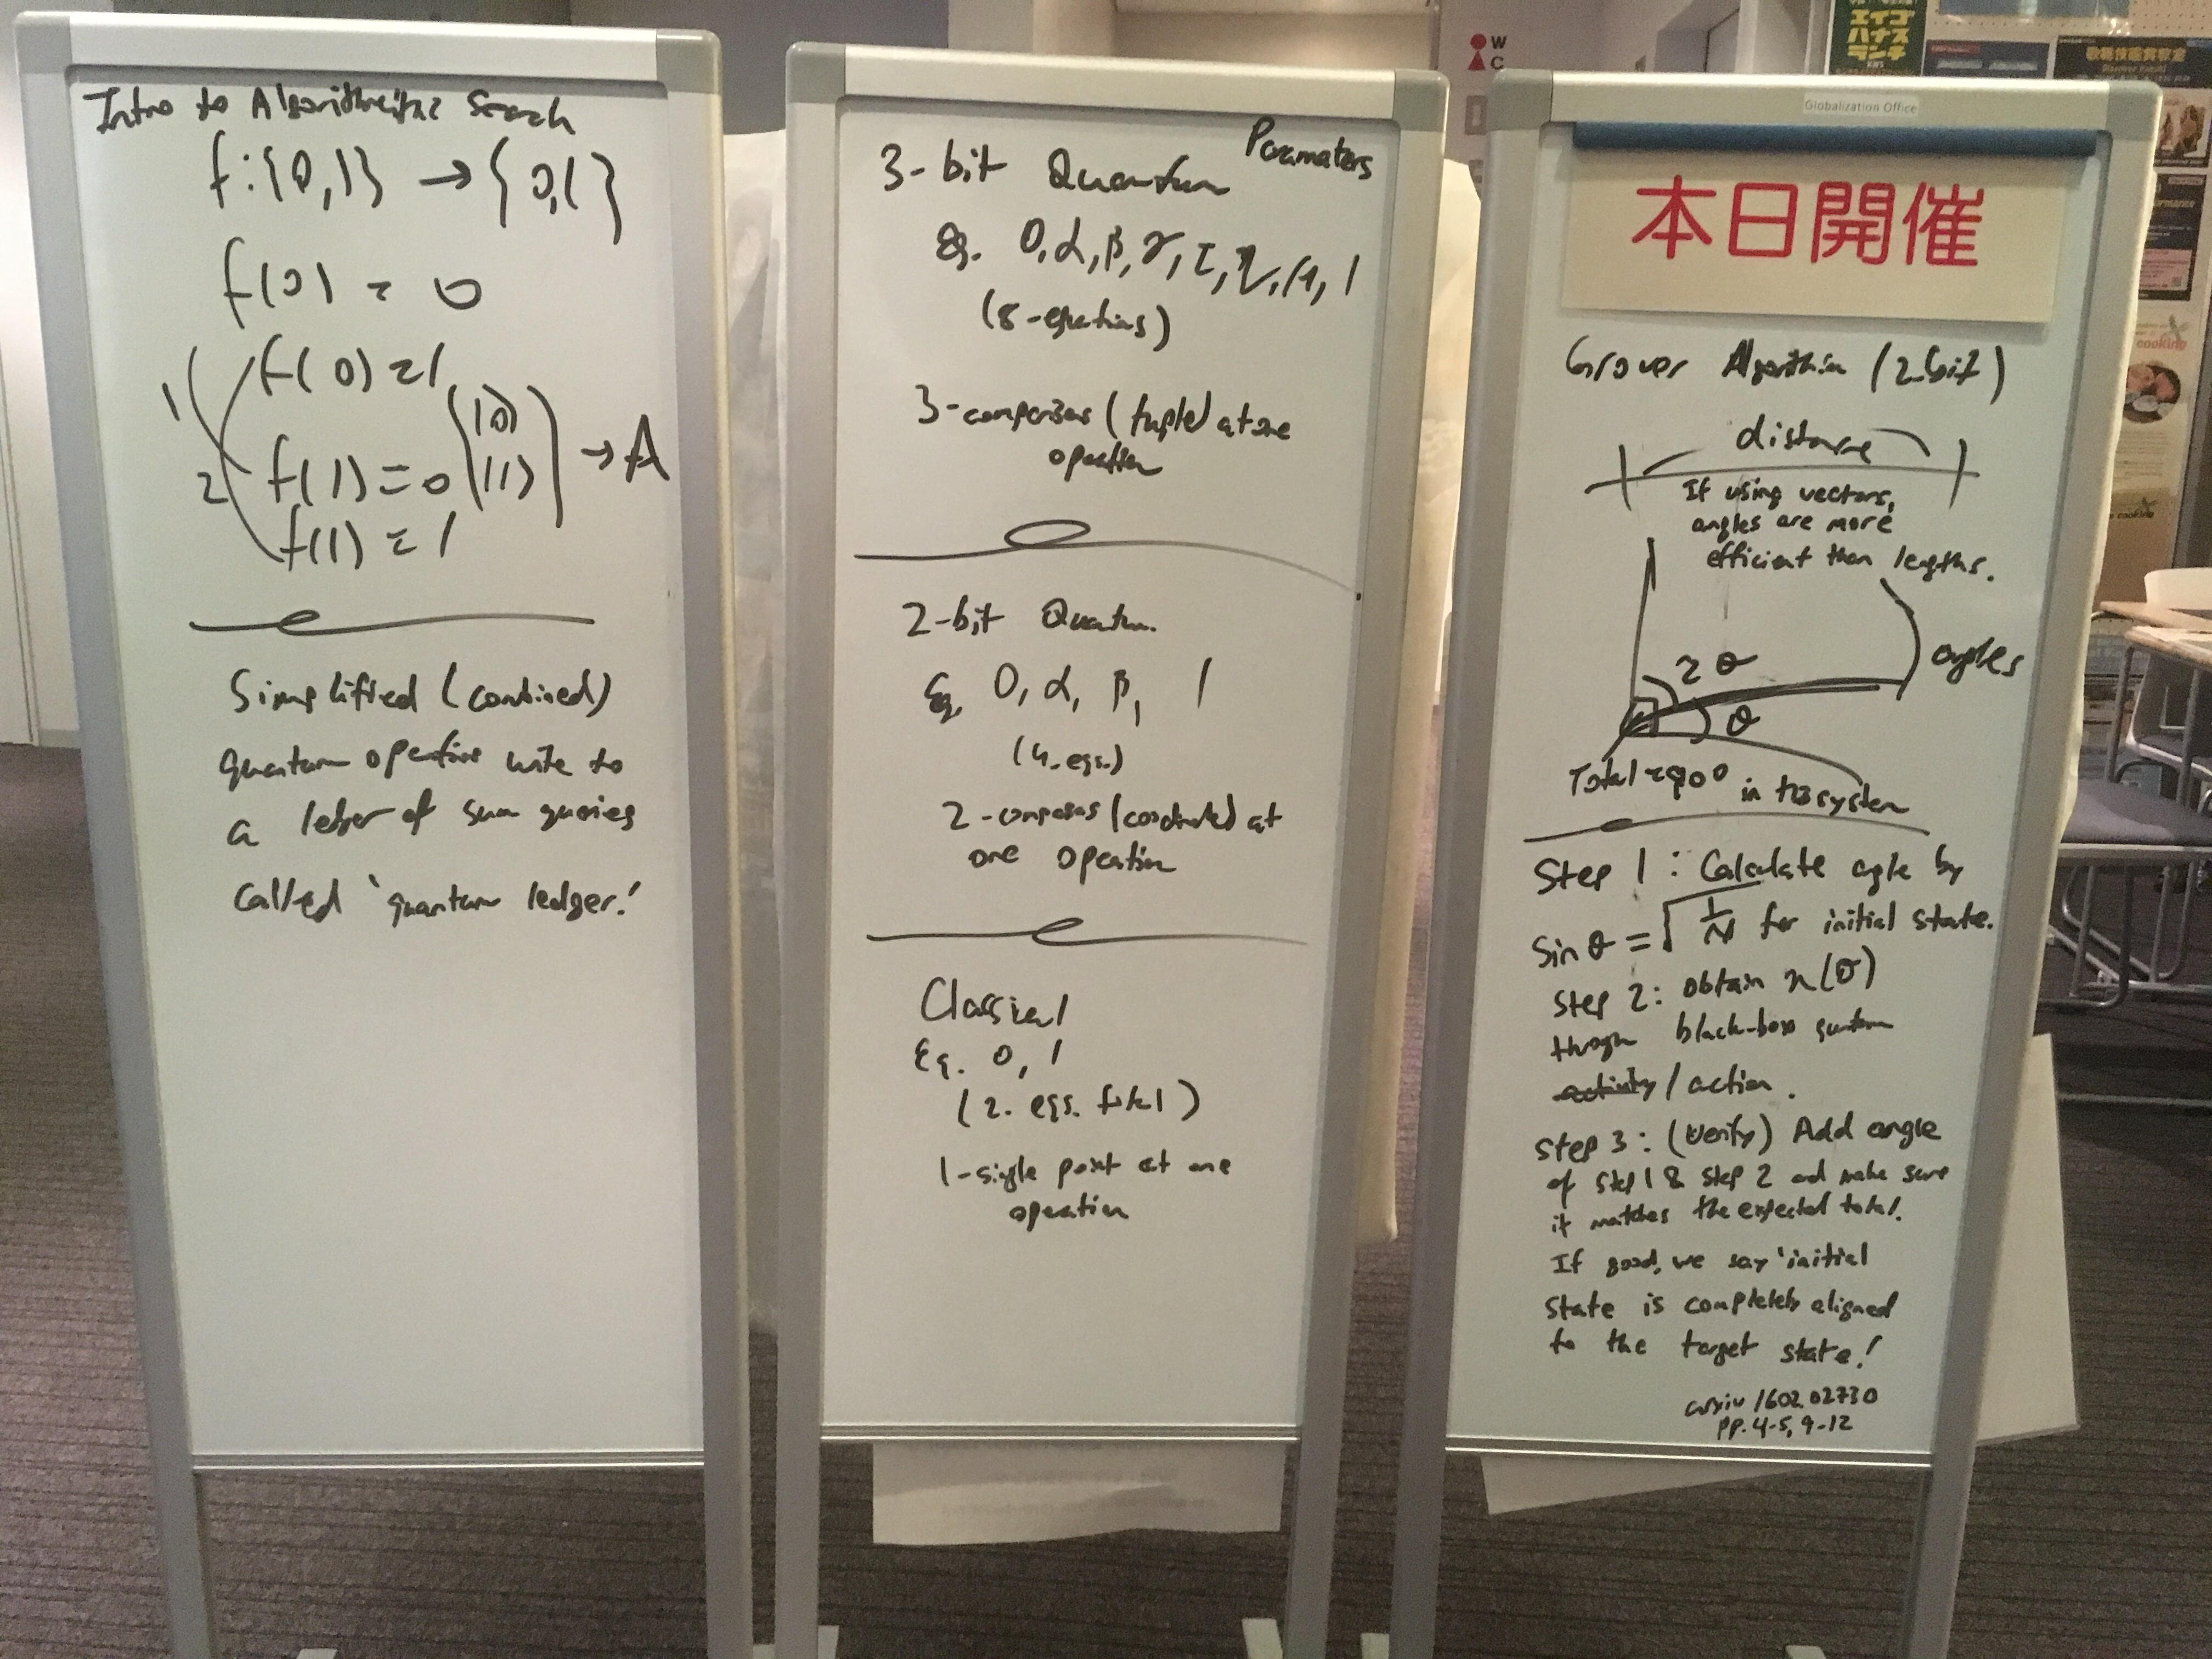 Intro to Algorithmic Search
f:{0,1} → {0,1}
f(0) = 0
f(0) = 1
1
2
f(1) = 0
(|0⟩
|1⟩) → A
f(1) = 1
Simplified (combined)
quantum operations write to
a ledger of sum queries
called 'quantum ledger.'
Paramaters
3-bit Quantum
Eq. 0, α, β, γ,
1
(8-equations)
(tuple) at one
operation
2-bit Quantum
Eq. 0, α, β, 1
(4. eqs.)
at
one operation
Classical
Eq. 0, 1
(2. eqs. total)
1-single point at one
operation
Globalization Office
本日開催
Grover Algorithm (2-bit)
distance
If using vectors,
angles are more
efficient than lengths.
2θ
θ
angles
Total = 90° in this system
Step 1: Calculate angle by
Sin θ = √1/N for initial state.
Step 2: obtain n(θ)
through black-box quantum
activity / action.
Step 3: (Verify) Add angle
of Step 1 & Step 2 and make sure
it matches the expected total.
If good, we say 'initial
state is completely aligned
to the target state!
arxiv 1602.02730
pp. 4-5, 9-12
W
C
エイゴ
ハナス
ランチ
cooking